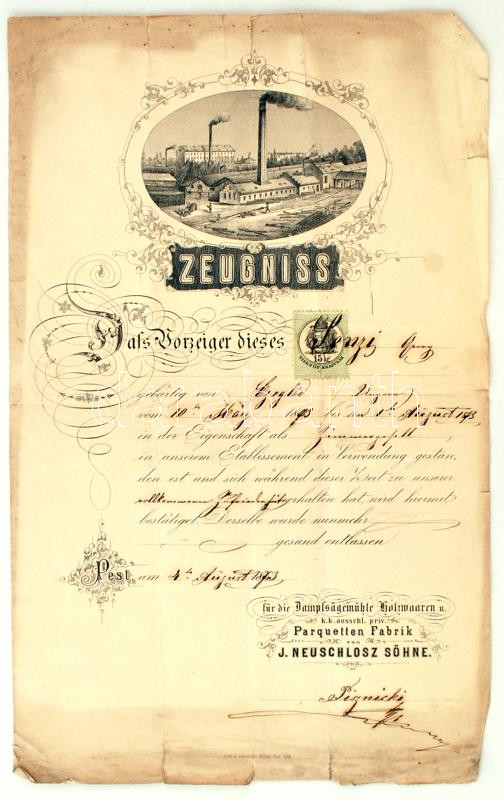 ZEUGNISS
Dass Vorzeiger dieses Georg
15 kr
gebürtig von Czegléd Ungarn
vom 10 März 1873 bis den August 1873
in der Eigenschaft als Zimmergesell
in unserem Etablissement in Verwendung gestan,
den ist und sich während dieser Zeit zu unserer
vollkommenen Zufriedenheit erhalten hat wird hiermit
bestätiget. Derselbe wurde nunmehr
gesund entlassen
Pest am 4ten August 1873
für die Dampfsägemühle Holzwaaren u.
k.k. ausschl. priv.
Parquetten Fabrik
von
J. NEUSCHLOSZ SÖHNE.